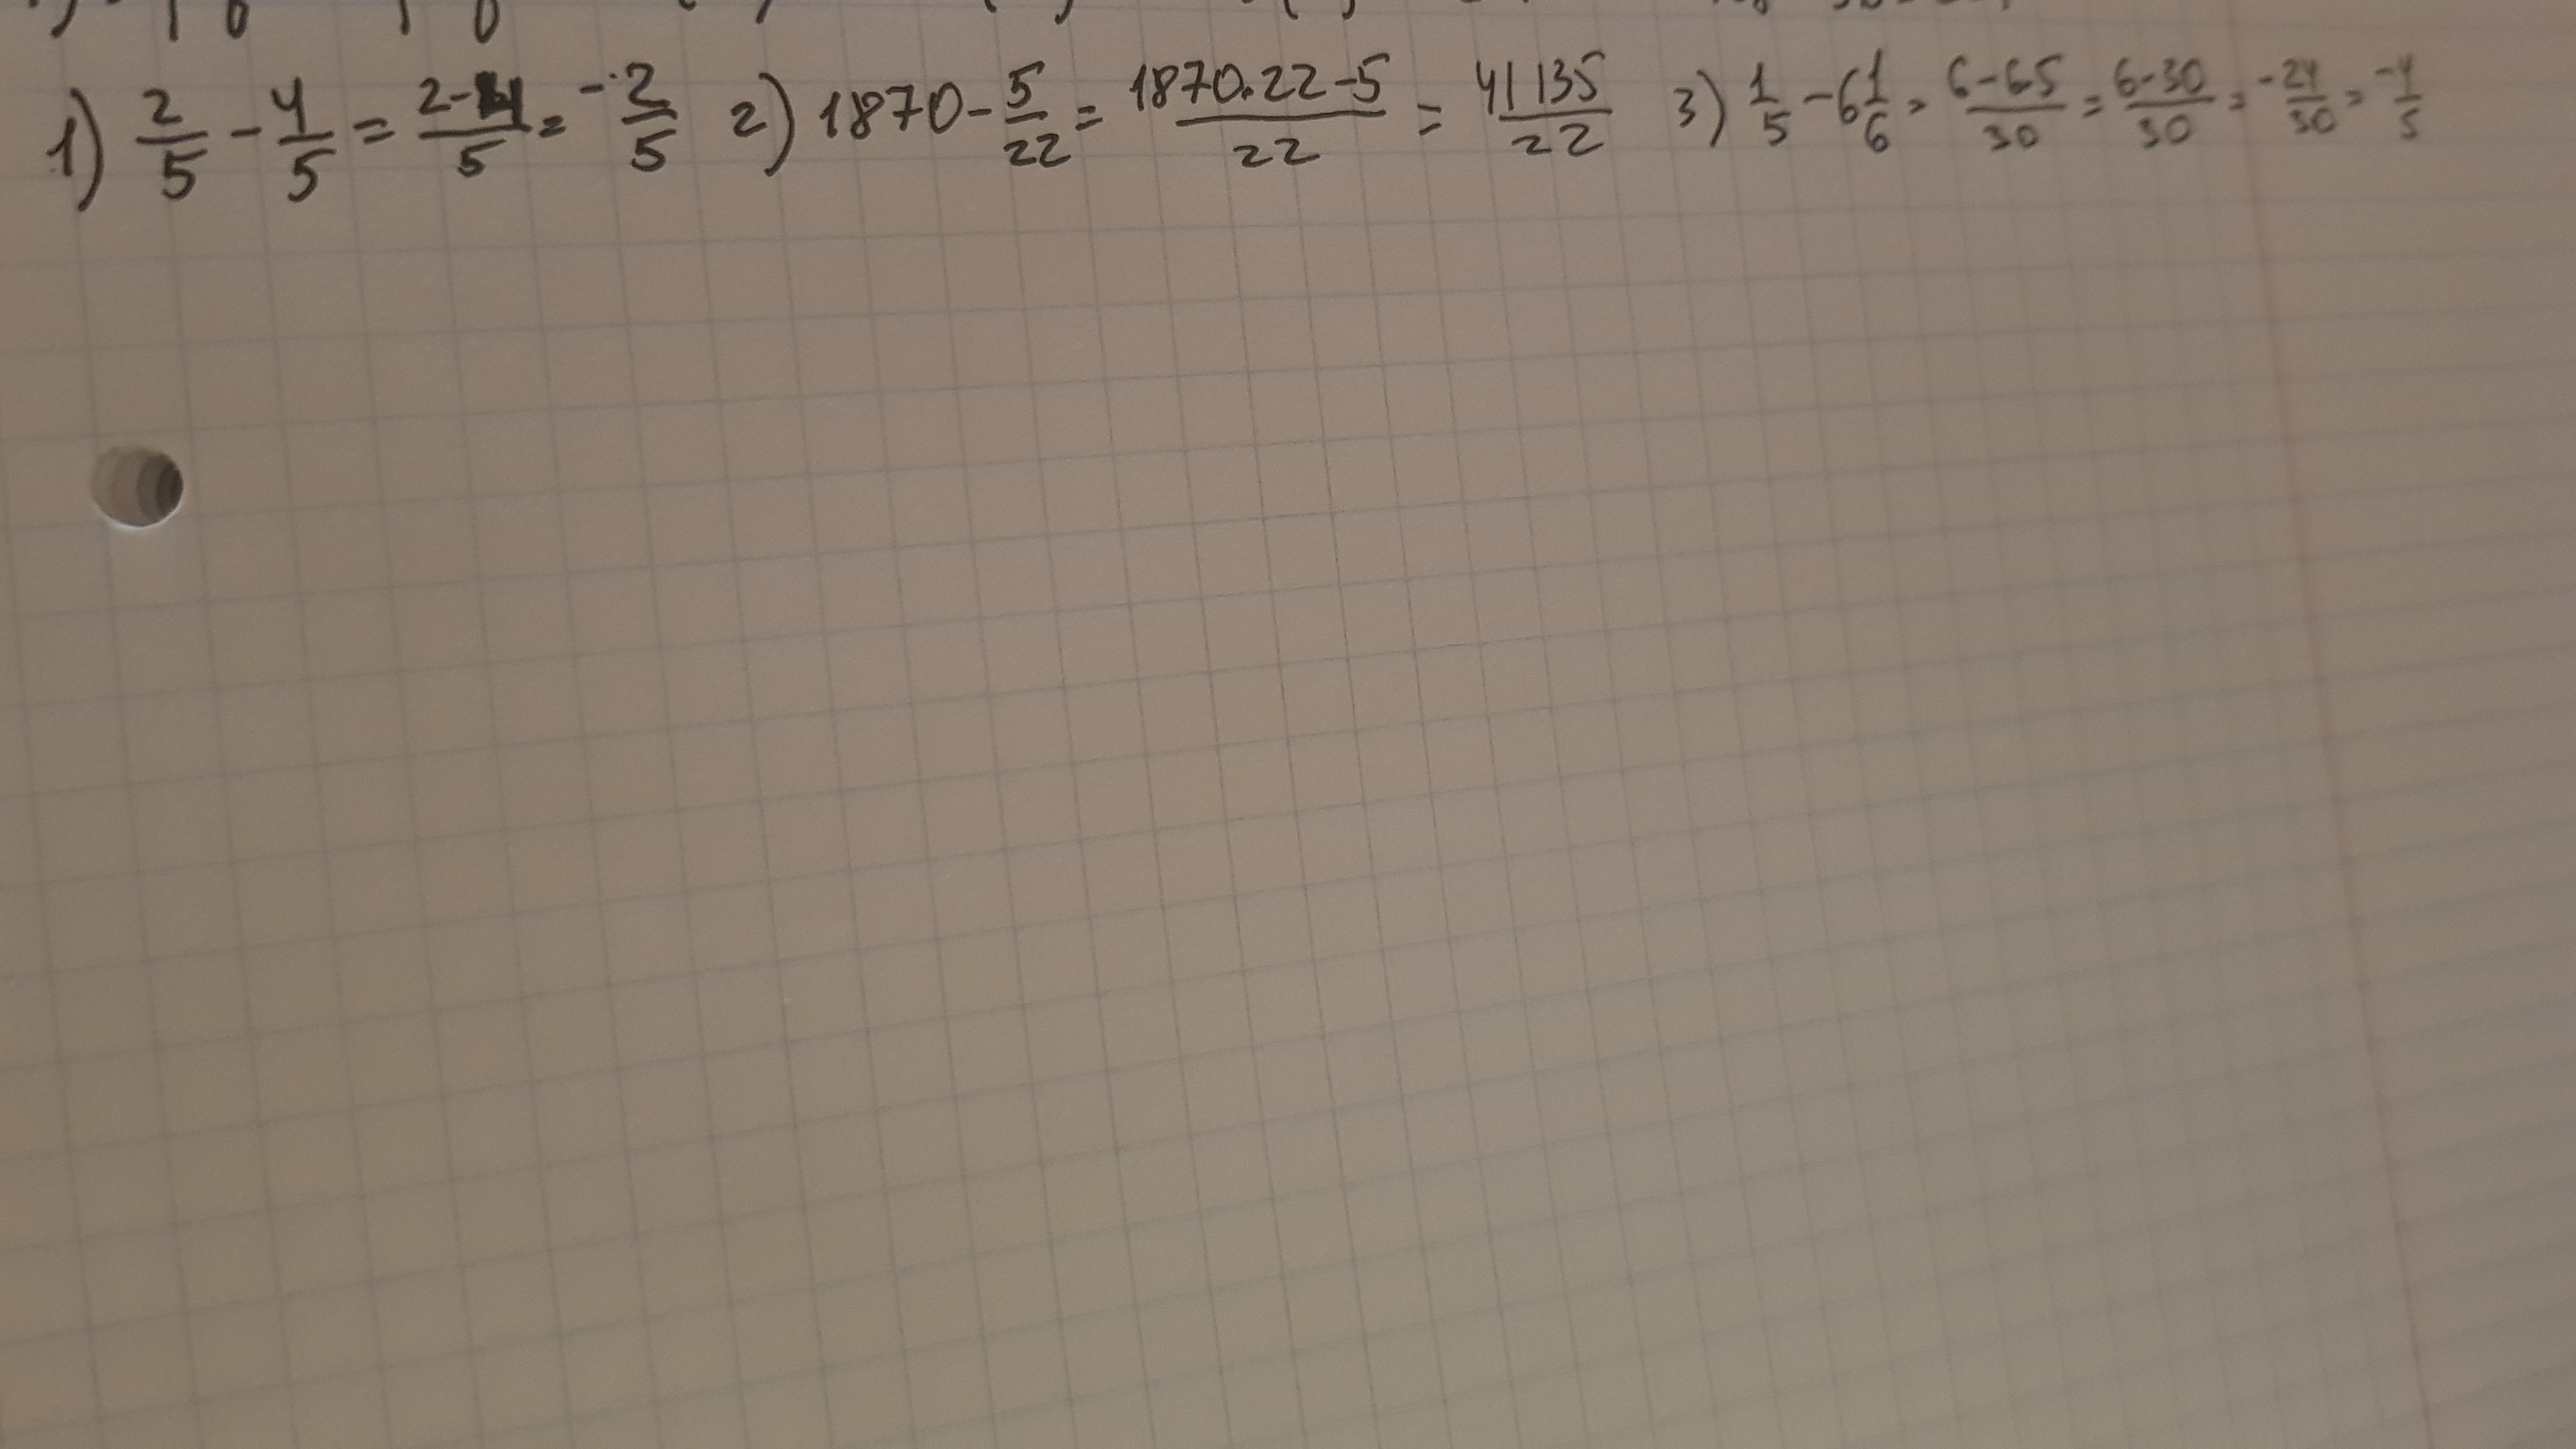 1) 2/5 - 4/5 = 2-4/5 = -2/5 2) 1870 - 5/22 = 1870.22-5/22 = 41135/22 3) 1/5 - 6 1/6 = 6-65/30 = 6-30/30 = -24/30 = -4/5